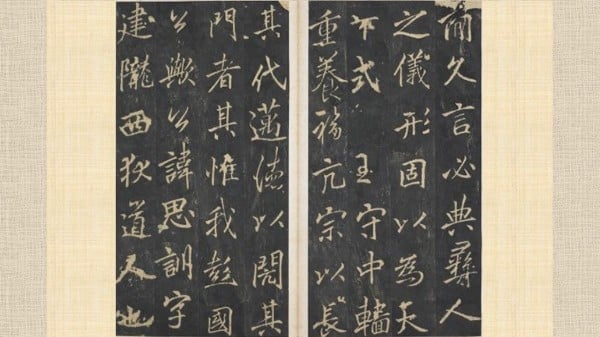 而久言必典彝人
之儀形固以為天
下式守中
重養福亢宗以長
其代邁德以閎其
門者其惟我彭國
公歟公諱思訓字
建隴西狄道人也